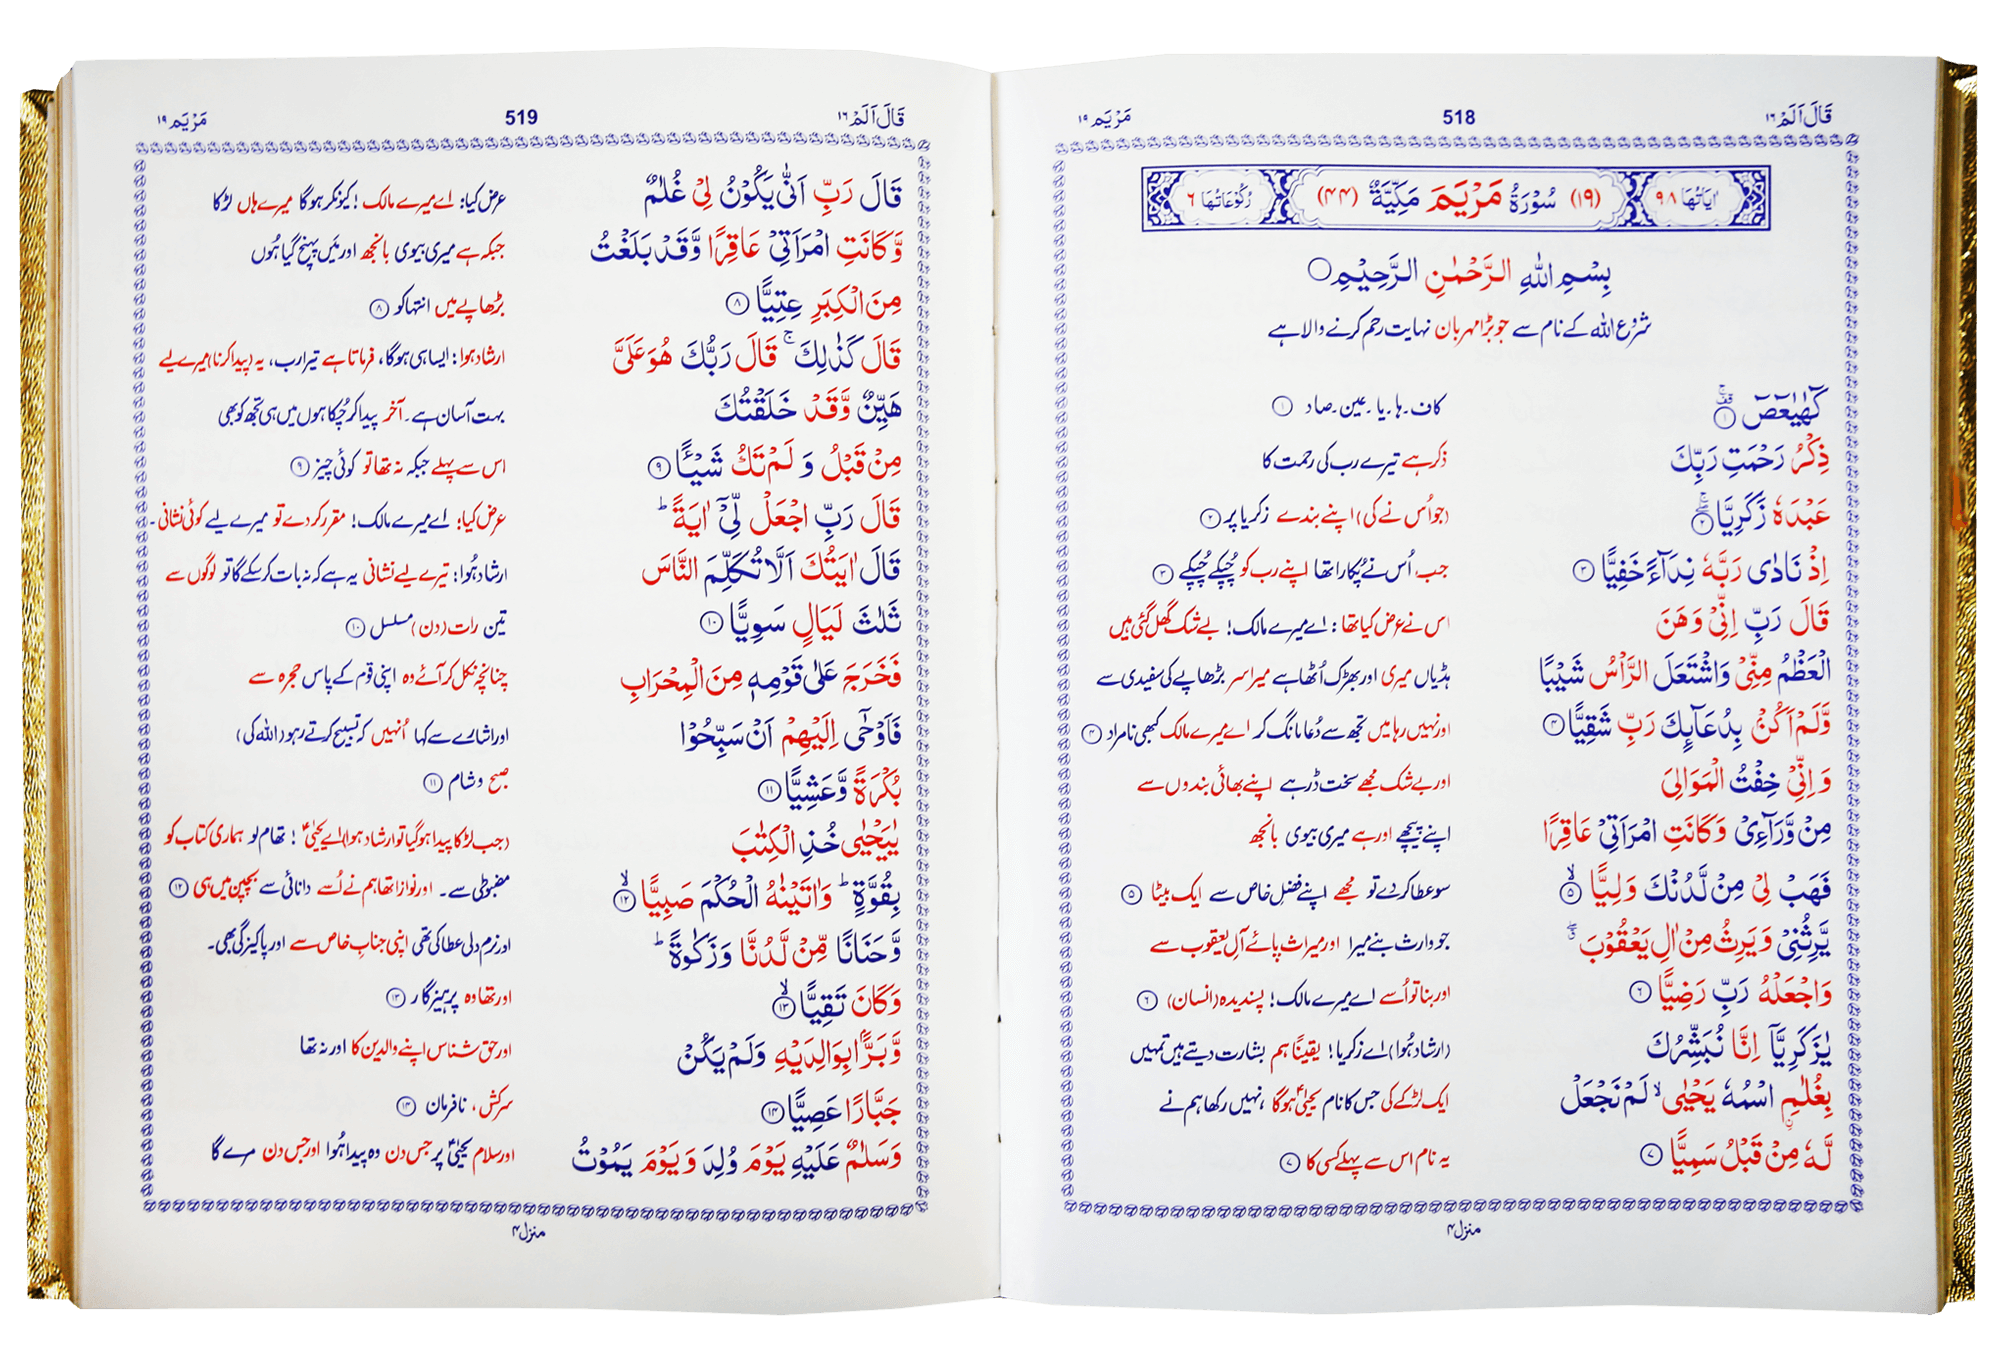 قَالَ اَلَمۡ ۱۶
518
مَرۡيَم ۱۹
اٰيَاتُهَا ۹۸
(۱۹) سُوۡرَةُ مَرۡيَمَ مَكِّيَّةٌ (۴۴)
رُكُوۡعَاتُهَا ۶
بِسۡمِ اللّٰهِ الرَّحۡمٰنِ الرَّحِيۡمِ
شروع اللہ کے نام سے جو بڑا مہربان نہایت رحم کرنے والا ہے
كٓهٰيٰعٓصٓ ۱ کاف۔ ہا۔ یا۔ عین۔ صاد ۱
ذِكۡرُ رَحۡمَتِ رَبِّكَ ذکر ہے تیرے رب کی رحمت کا
عَبۡدَهٗ زَكَرِيَّا ۲ (جو اُس نے کی) اپنے بندے زکریا پر ۲
اِذۡ نَادٰى رَبَّهٗ نِدَآءً خَفِيًّا ۳ جب اُس نے پُکارا تھا اپنے رب کو چُپکے چُپکے ۳
قَالَ رَبِّ اِنِّىۡ وَهَنَ اس نے عرض کیا تھا: اے میرے مالک! بے شک گھل گئی ہیں
الۡعَظۡمُ مِنِّىۡ وَاشۡتَعَلَ الرَّاۡسُ شَيۡبًا ہڈیاں میری اور بھڑک اُٹھا ہے میرا سر بڑھاپے کی سفیدی سے
وَّلَمۡ اَكُنۡۢ بِدُعَآئِكَ رَبِّ شَقِيًّا ۴ اور نہیں رہا میں تجھ سے دُعا مانگ کر اے میرے مالک کبھی نامراد ۴
وَاِنِّىۡ خِفۡتُ الۡمَوَالِىَ اور بے شک مجھے سخت ڈر ہے اپنے بھائی بندوں سے
مِنۡ وَّرَآءِىۡ وَكَانَتِ امۡرَاَتِىۡ عَاقِرًا اپنے پیچھے اور ہے میری بیوی بانجھ
فَهَبۡ لِىۡ مِنۡ لَّدُنۡكَ وَلِيًّا ۵ سو عطا کر دے تو مجھے اپنے فضل خاص سے ایک بیٹا ۵
يَّرِثُنِىۡ وَيَرِثُ مِنۡ اٰلِ يَعۡقُوۡبَ جو وارث بنے میرا اور میراث پائے آلِ یعقوب سے
وَاجۡعَلۡهُ رَبِّ رَضِيًّا ۶ اور بنا تو اُسے اے میرے مالک! پسندیدہ (انسان) ۶
يٰزَكَرِيَّآ اِنَّا نُبَشِّرُكَ (ارشاد ہُوا) اے زکریا! یقیناً ہم بشارت دیتے ہیں تمہیں
بِغُلٰمِ اۨسۡمُهٗ يَحۡيٰى لَمۡ نَجۡعَلۡ ایک لڑکے کی جس کا نام یحییٰ ہوگا، نہیں رکھا ہم نے
لَّهٗ مِنۡ قَبۡلُ سَمِيًّا ۷ یہ نام اس سے پہلے کسی کا ۷
منزل ۴
قَالَ اَلَمۡ ۱۶
519
مَرۡيَم ۱۹
قَالَ رَبِّ اَنّٰى يَكُوۡنُ لِىۡ غُلٰمٌ عرض کیا: اے میرے مالک! کیونکر ہوگا میرے ہاں لڑکا
وَّكَانَتِ امۡرَاَتِىۡ عَاقِرًا وَّقَدۡ بَلَغۡتُ جبکہ ہے میری بیوی بانجھ اور مَیں پہنچ گیا ہُوں
مِنَ الۡكِبَرِ عِتِيًّا ۸ بڑھاپے میں انتہا کو ۸
قَالَ كَذٰلِكَ ۚ قَالَ رَبُّكَ هُوَ عَلَىَّ ارشاد ہوا: ایسا ہی ہوگا، فرماتا ہے تیرا رب، یہ (پیدا کرنا) میرے لیے
هَيِّنٌ وَّقَدۡ خَلَقۡتُكَ بہت آسان ہے۔ آخر پیدا کر چُکا ہوں میں ہی تجھ کو بھی
مِنۡ قَبۡلُ وَلَمۡ تَكُ شَيۡـًٔـا ۹ اس سے پہلے جبکہ نہ تھا تو کوئی چیز ۹
قَالَ رَبِّ اجۡعَلۡ لِّىۡۤ اٰيَةً ؕ عرض کیا: اے میرے مالک! مقرر کر دے تو میرے لیے کوئی نشانی۔
قَالَ اٰيَتُكَ اَلَّا تُكَلِّمَ النَّاسَ ارشاد ہُوا: تیرے لیے نشانی یہ ہے کہ نہ بات کر سکے گا تو لوگوں سے
ثَلٰثَ لَيَالٍ سَوِيًّا ۱۰ تین رات (دن) مسلسل ۱۰
فَخَرَجَ عَلٰى قَوۡمِهٖ مِنَ الۡمِحۡرَابِ چنانچہ نکل کر آئے وہ اپنی قوم کے پاس حجرہ سے
فَاَوۡحٰٓى اِلَيۡهِمۡ اَنۡ سَبِّحُوۡا اور اشارے سے کہا اُنہیں کہ تسبیح کرتے رہو (اللہ کی)
بُكۡرَةً وَّعَشِيًّا ۱۱ صبح و شام ۱۱
يٰيَحۡيٰى خُذِ الۡكِتٰبَ (جب لڑکا پیدا ہوگیا تو ارشاد ہوا) اے یحییٰ! تھام لو ہماری کتاب کو
بِقُوَّةٍ ؕ وَاٰتَيۡنٰهُ الۡحُكۡمَ صَبِيًّا ۱۲ مضبوطی سے۔ اور نوازا تھا ہم نے اُسے دانائی سے بچپن میں ہی ۱۲
وَّحَنَانًا مِّنۡ لَّدُنَّا وَزَكٰوةً ؕ اور نرم دلی عطا کی تھی اپنی جنابِ خاص سے اور پاکیزگی بھی۔
وَكَانَ تَقِيًّا ۱۳ اور تھا وہ پرہیزگار ۱۳
وَّبَرًّۢا بِوَالِدَيۡهِ وَلَمۡ يَكُنۡ اور حق شناس اپنے والدین کا اور نہ تھا
جَبَّارًا عَصِيًّا ۱۴ سرکش، نافرمان ۱۴
وَسَلٰمٌ عَلَيۡهِ يَوۡمَ وُلِدَ وَيَوۡمَ يَمُوۡتُ اور سلام یحییٰ پر جس دن وہ پیدا ہُوا اور جس دن مرے گا
منزل ۴